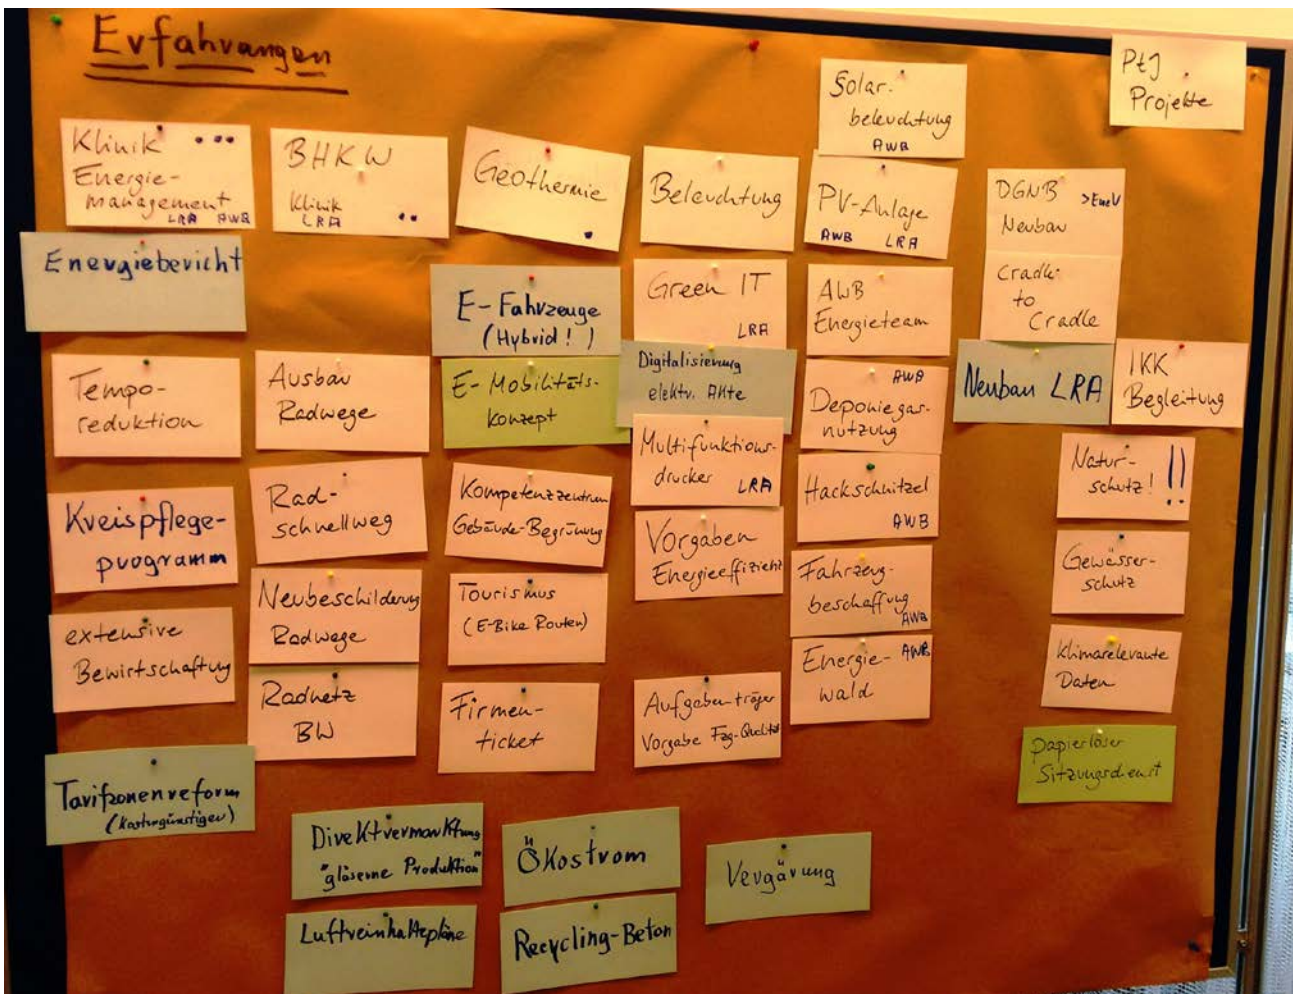 Erfahrungen
Klinik
Energie-
management
LRA AWB
Energiebericht
Tempo-
reduktion
Kreispflege-
programm
extensive
Bewirtschaftung
Tarifzonenreform
(kostengünstiger)
BHKW
Klinik
LRA
Ausbau
Radwege
Rad-
schnellweg
Neubeschilderung
Radwege
Radnetz
BW
Direktvermarktung
"gläserne Produktion"
Luftreinhaltepläne
Geothermie
E-Fahrzeuge
(Hybrid!)
E-Mobilitäts-
konzept
Kompetenzzentrum
Gebäude-Begrünung
Tourismus
(E-Bike Routen)
Firmen-
ticket
Ökostrom
Recycling-Beton
Beleuchtung
Green IT
LRA
Digitalisierung
elektr. Akte
Multifunktions-
drucker LRA
Vorgaben
Energieeffizienz
Aufgabenträger
Vorgabe Fzg-Qualität
Vergärung
Solar-
beleuchtung
AWB
PV-Anlage
AWB LRA
AWB
Energieteam
AWB
Deponiegas-
nutzung
Hackschnitzel
AWB
Fahrzeug-
beschaffung
AWB
Energie- AWB
wald
DGNB >EneV
Neubau
Cradle
to
Cradle
Neubau LRA
PtJ
Projekte
IKK
Begleitung
Natur-
schutz! !!
Gewässer-
schutz
Klimarelevante
Daten
papierloser
Sitzungsdienst